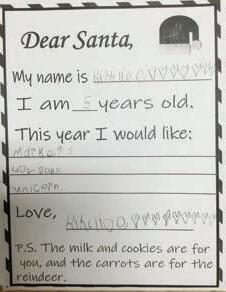 Dear Santa,
My name is
I am 5 years old.
This year I would like:
markers
unicorn
Love,
P.S. The milk and cookies are for
you, and the carrots are for the
reindeer.